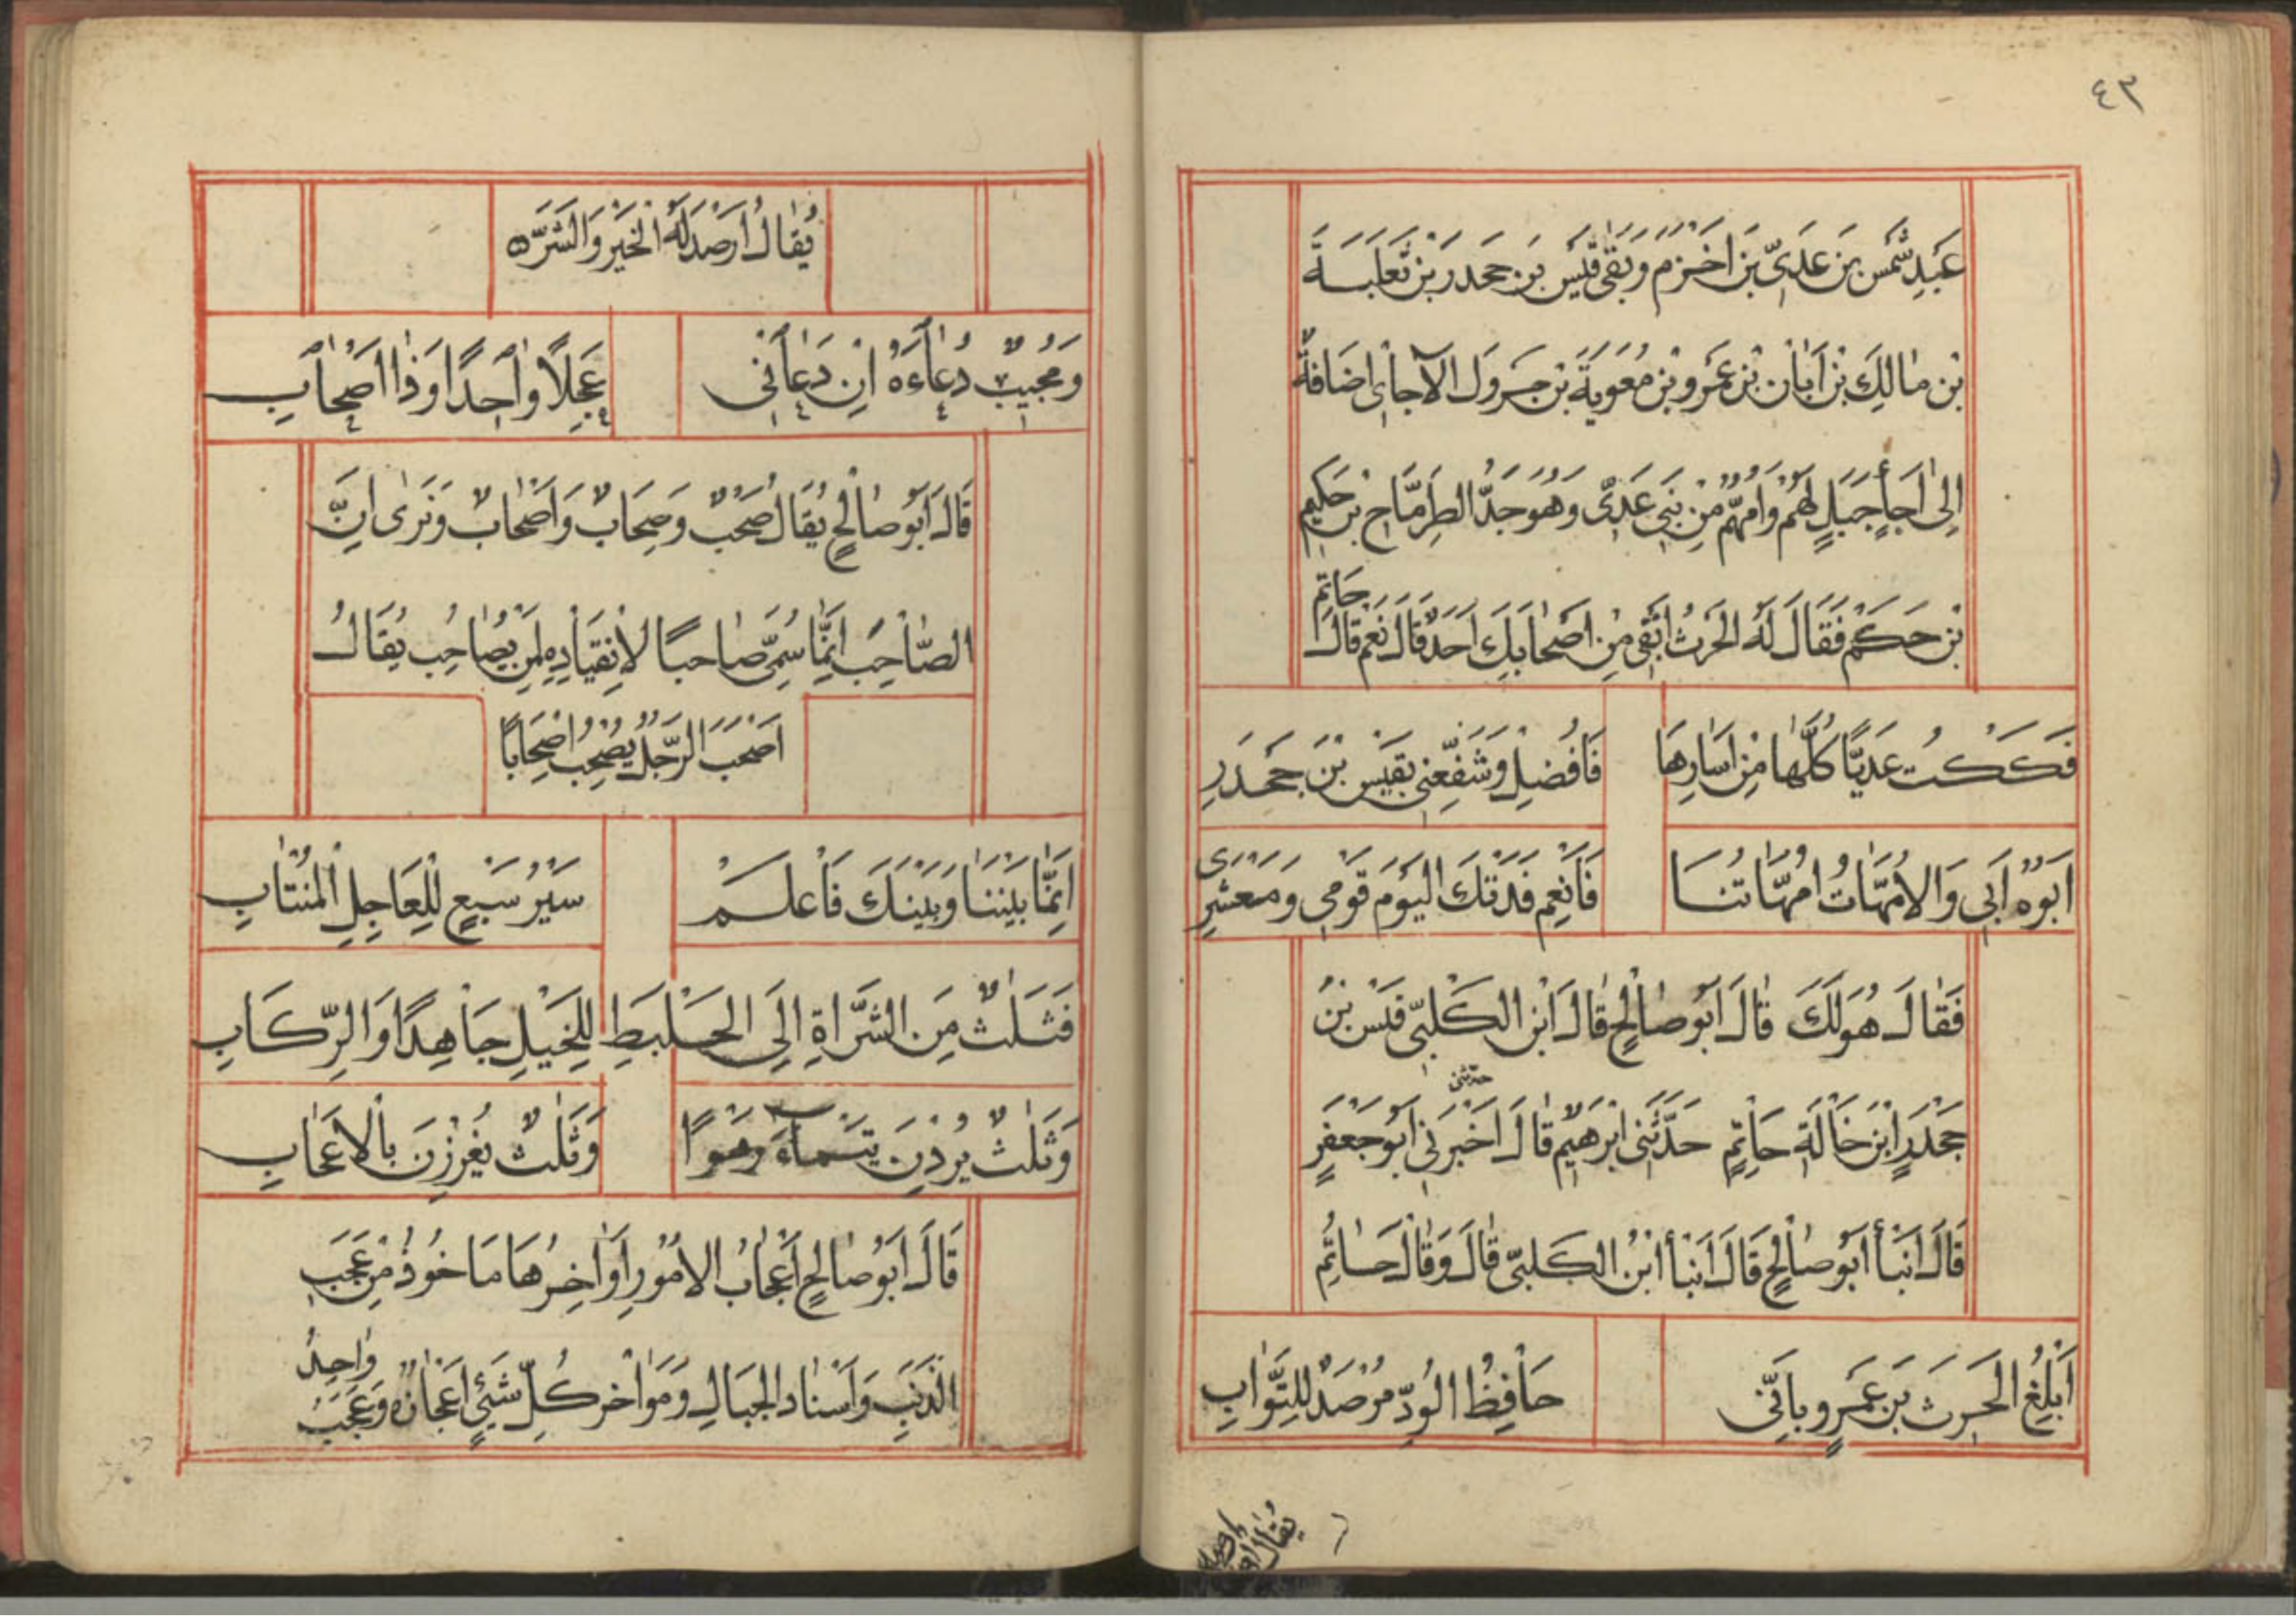 ٤٣
عَبْدِ شَمْسِ بْنِ عَدِيِّ بْنِ اَخْزَمِ وَبَقِىَ قَيْسُ بْنُ جَحْدَرِ بْنِ ثَعْلَبَةَ
بْنِ مالِكِ بْنِ اَبَانِ بْنِ عَمْرِو بْنِ مُعٰوِيَةَ بْنِ جَرْوَلِ الآجاىِٔ اضَافَةً
اِلٰى اَجَأٍ جَبَلٍ لَهُمْ وَاُمُّهُمْ مِنْ بَنِى عَدِىٍّ وَهُوَ جَدُّ الطِرِمَّاحِ بْنِ حَكِيمِ
بْنِ حَكَمٍ فَقَالَ لَهُ الحَرِثُ اَبَقِىَ مِنْ اَصْحَابِكَ اَحَدٌ قَالَ نَعَمْ قَالَ حَاتِمٌ
فَكَكْتَ عَدِيًّا كُلَّهَا مِنْ اِسَارِهَا فَافْضِلْ وَشَفِّعْنِى بِقَيْسِ بْنِ جَحْدَرِ
اَبُوهُ اَبِى وَالاُمَّهَاتُ اُمَّهَاتُنَا فَانْعِمْ فَدَتْكَ اليَوْمَ قَوْمِى وَمَعْشَرِى
فَقَالَ هُوَ لَكَ قَالَ اَبُو صَالِحٍ قَالَ ابْنُ الكَلْبِىِّ قَيْسُ بْنُ
جَحْدَرٍ ابْنُ خَالَةِ حَاتِمٍ حَدَّثَنِى ابْرٰهِيمُ قَالَ اَخْبَرَنِى حدثنى اَبُو جَعْفَرٍ
قَالَ اَنْبَأَ اَبُو صَالِحٍ قَالَ اَنْبَأَ ابْنُ الكَلْبِىِّ قَالَ وَقَالَ حَاتِمٌ
اَبْلِغِ الحَرِثَ بْنَ عَمْرٍو بِاَنِّى حَافِظُ الوُدِّ مُرْصَدٌ لِلثَّوَابِ
يُقَالُ
يُقَالُ اَرْصَدَ لَهُ الخَيْرَ وَالشَرَّ ه
وَمُجِيبٌ دُعَاءَهُ اِنْ دَعَانِى عَجِلًا وَاحِدًا وَذَا اَصْحَابِ
قَالَ اَبُو صَالِحٍ يُقَالُ صَحْبٌ وَصِحَابٌ وَاَصْحَابٌ وَنَرٰى اِنَّ
الصَّاحِبَ اِنَّمَا سُمِّىَ صَاحِبًا لاِنْقِيَادِهِ لِمَنْ يُصَاحِبُ يُقَالُ
اَصْحَبَ الرَّجُلُ يُصْحِبُ اِصْحَابًا
اِنَّمَا بَيْنَنَا وَبَيْنَكَ فَاعْلَمْ سَيْرُ سَبْعٍ لِلْعَاجِلِ المُنْتَابِ
فَثَلٰثٌ مِنَ الشَّرَاةِ اِلَى الحَلْبَطِ لِلْخَيْلِ جَاهِدًا وَالرِّكَابِ
وَثَلٰثٌ يُرِدْنَ تَيْمَاءَ رَهْوًا وَثَلٰثٌ يُغْرِزْنَ بِالاَعْجَابِ
قَالَ اَبُو صَالِحٍ اَعْجَابُ الاُمُورِ اَوَاخِرُهَا مَاخُوذٌ مِنْ عَجَبِ
الذَّنَبِ وَاَسْنَادِ الجِبَالِ وَمَوَاخِرِ كُلِّ شَيْئٍ اَعْجَابُهُ وَعَجَبٌ وَاحِدٌ